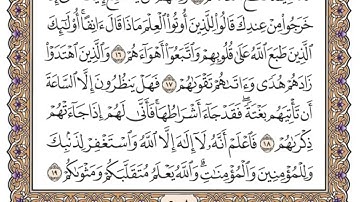 خَرَجُوا۟ مِنْ عِندِكَ قَالُوا۟ لِلَّذِينَ أُوتُوا۟ ٱلْعِلْمَ مَاذَا قَالَ ءَانِفًا أُو۟لَٰٓئِكَ
ٱلَّذِينَ طَبَعَ ٱللَّهُ عَلَىٰ قُلُوبِهِمْ وَٱتَّبَعُوٓا۟ أَهْوَآءَهُمْ ١٦ وَٱلَّذِينَ ٱهْتَدَوْا۟
زَادَهُمْ هُدًى وَءَاتَىٰهُمْ تَقْوَىٰهُمْ ١٧ فَهَلْ يَنظُرُونَ إِلَّا ٱلسَّاعَةَ
أَن تَأْتِيَهُم بَغْتَةً فَقَدْ جَآءَ أَشْرَاطُهَا فَأَنَّىٰ لَهُمْ إِذَا جَآءَتْهُمْ
ذِكْرَىٰهُمْ ١٨ فَٱعْلَمْ أَنَّهُۥ لَآ إِلَٰهَ إِلَّا ٱللَّهُ وَٱسْتَغْفِرْ لِذَنۢبِكَ
وَلِلْمُؤْمِنِينَ وَٱلْمُؤْمِنَٰتِ وَٱللَّهُ يَعْلَمُ مُتَقَلَّبَكُمْ وَمَثْوَىٰكُمْ ١٩